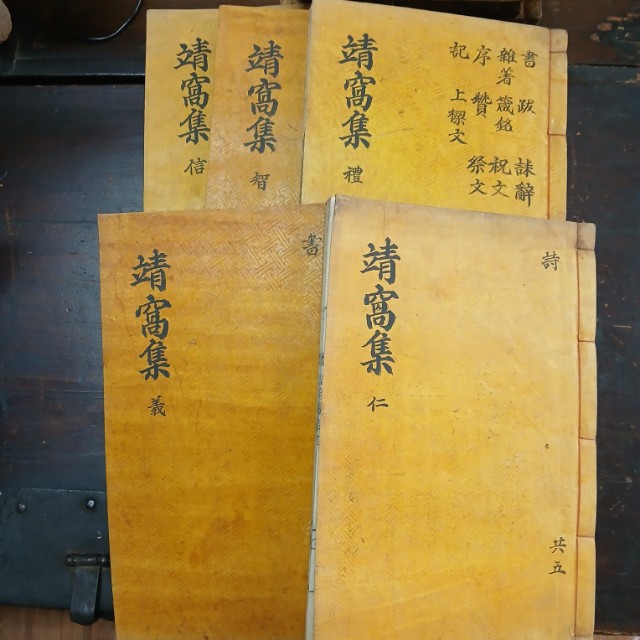 靖窩集 信
靖窩集 智
書 跋 誄辭
雜著 箴銘 祝文
序 贊 祭文
記 上樑文
靖窩集 禮
書
靖窩集 義
詩
共五
靖窩集 仁